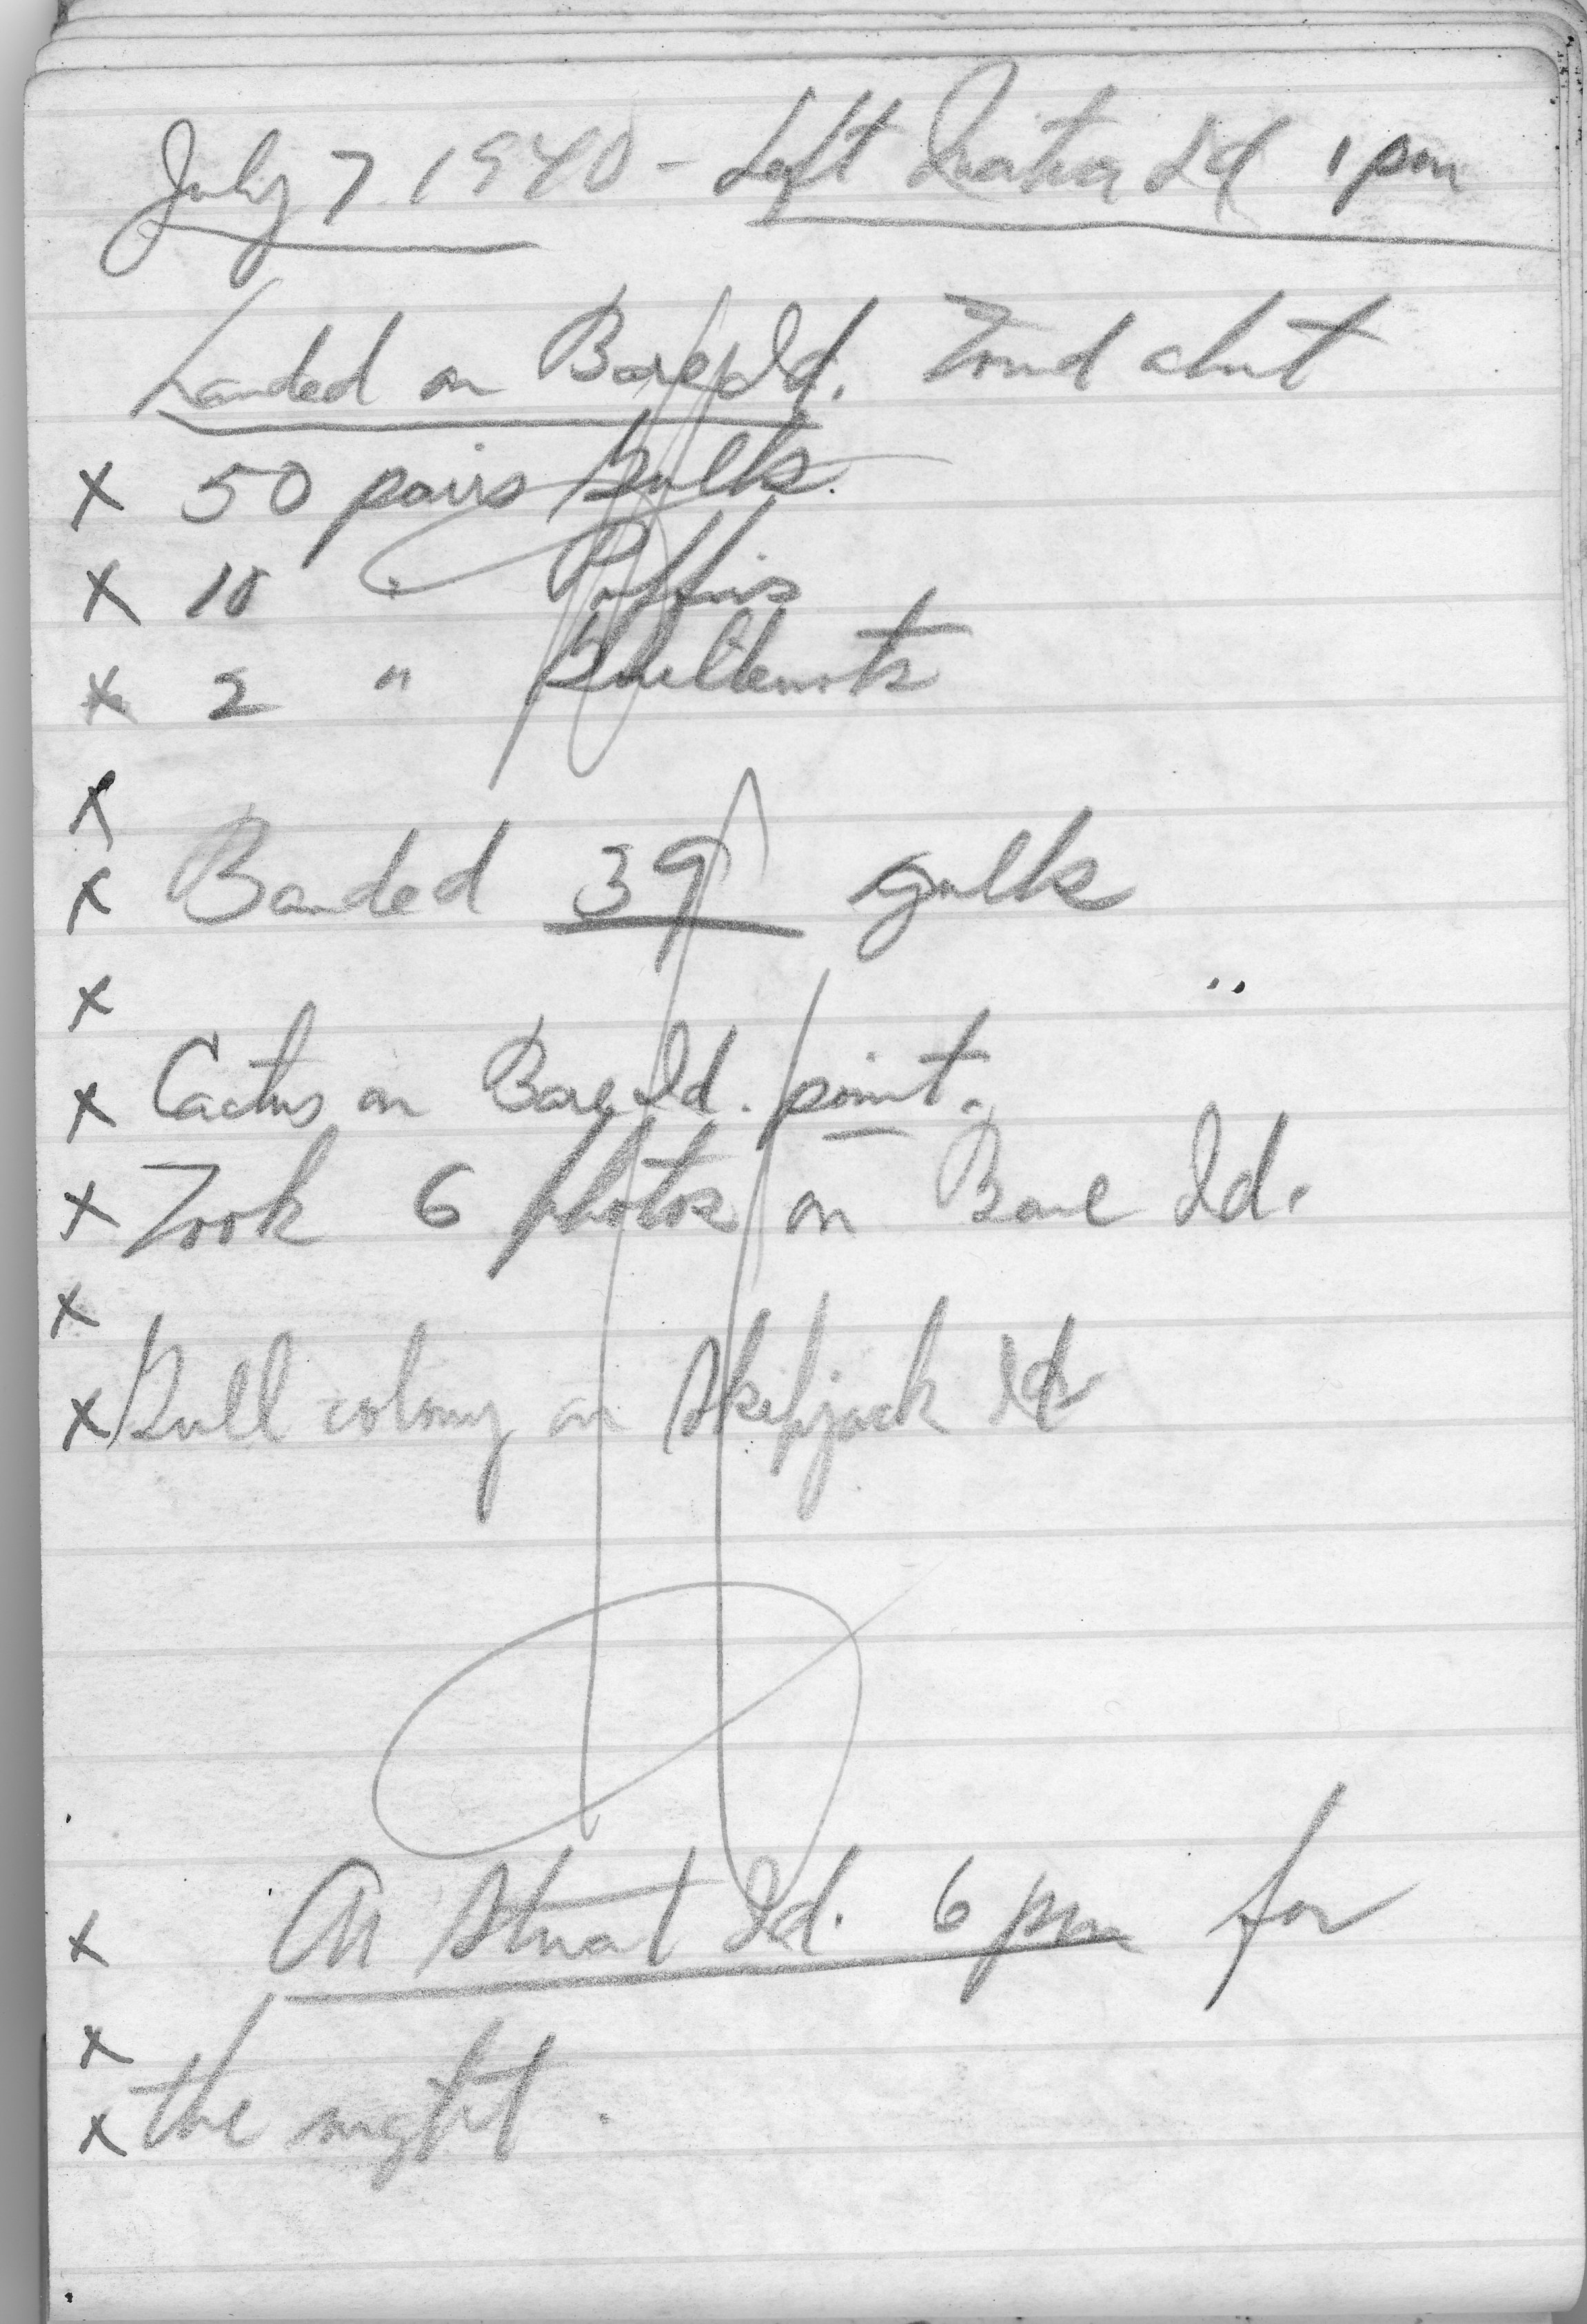 July 7 1940 - Left Matia Id 1 pm
Landed on Bare Id. Found about
X 50 pairs Gulls.
X 10 " Puffins
X 2 " Guillemots
X
X Banded 39 gulls
X
X Cactus on Bare Id. point.
X Took 6 photos on Bare Id.
X
X Gull colony on Skipjack Id
X At Stuart Id. 6 pm for
X
X the night.